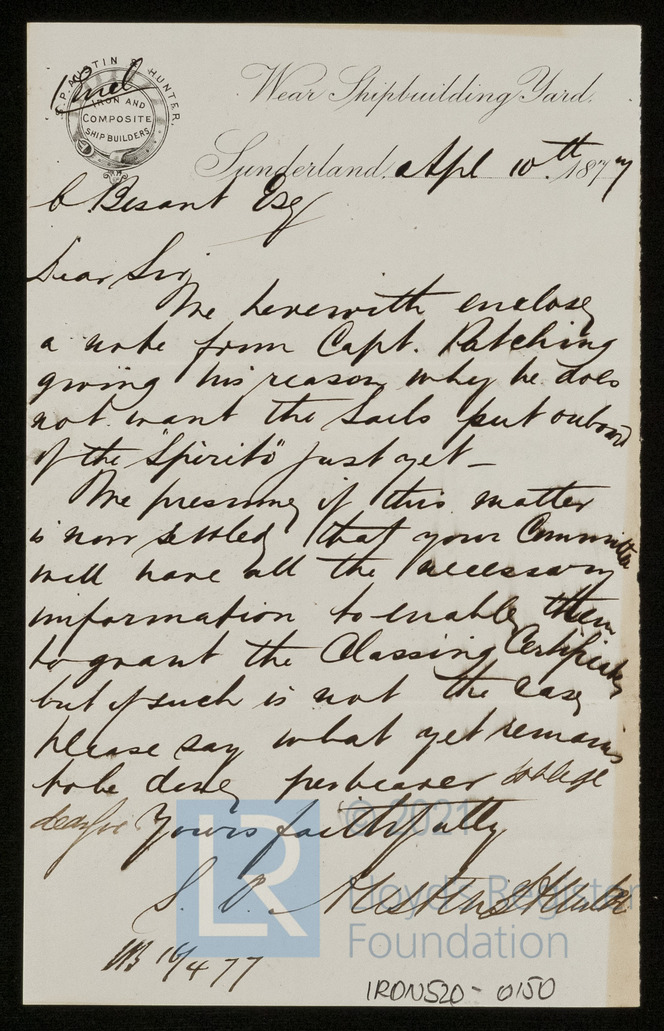 S. P. AUSTIN & HUNTER,
IRON AND
COMPOSITE
SHIP BUILDERS
1 Encl
Wear Shipbuilding Yard.
Sunderland, Apl 10th 1877
C Besant Esq
Dear Sir,
We herewith enclose
a note from Capt. Patching
giving his reason why he does
not want the sails put onboard
of the "Spirito" just yet -
We presume if this matter
is now settled that your Committee
will have all the necessary
information to enable them
to grant the Classing Certificate
but if such is not the case
please say what yet remains
to be done, per bearer to oblige
dear Sir Yours faithfully
S. P. Austin & Hunter
10/4 77
IRON520-0150
LR
© 2021
Lloyd's Register
Foundation